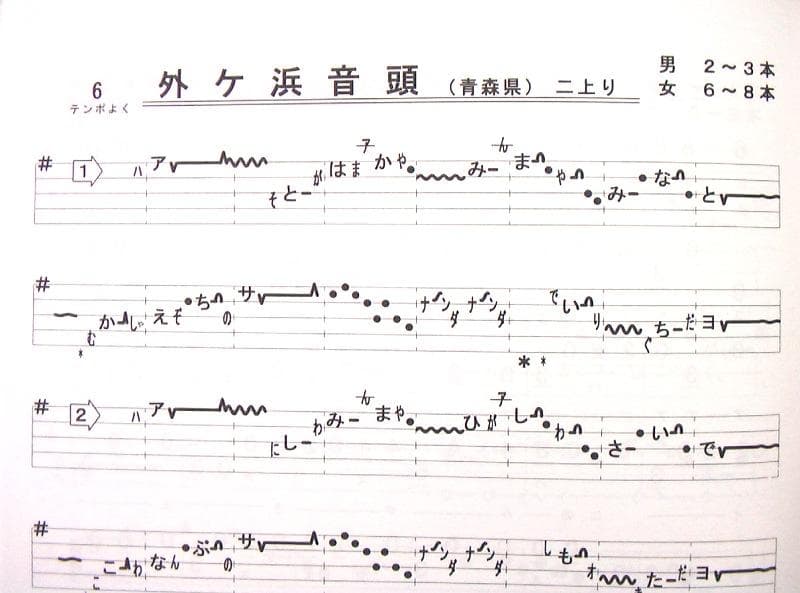 6 外ケ浜音頭 (青森県) 二上り 男 2～3本
テンポよく 女 6～8本
# 1 ハ アーそとーがはま かゃみーまゃみーなと
# むかしゃえぞちの サ ナンダナンダ でいりぐちーだヨ
# 2 ハ アーにしーわみーまゃひがしわさーいで
# こーわなんぶの サ ナンダナンダ しもオただヨ